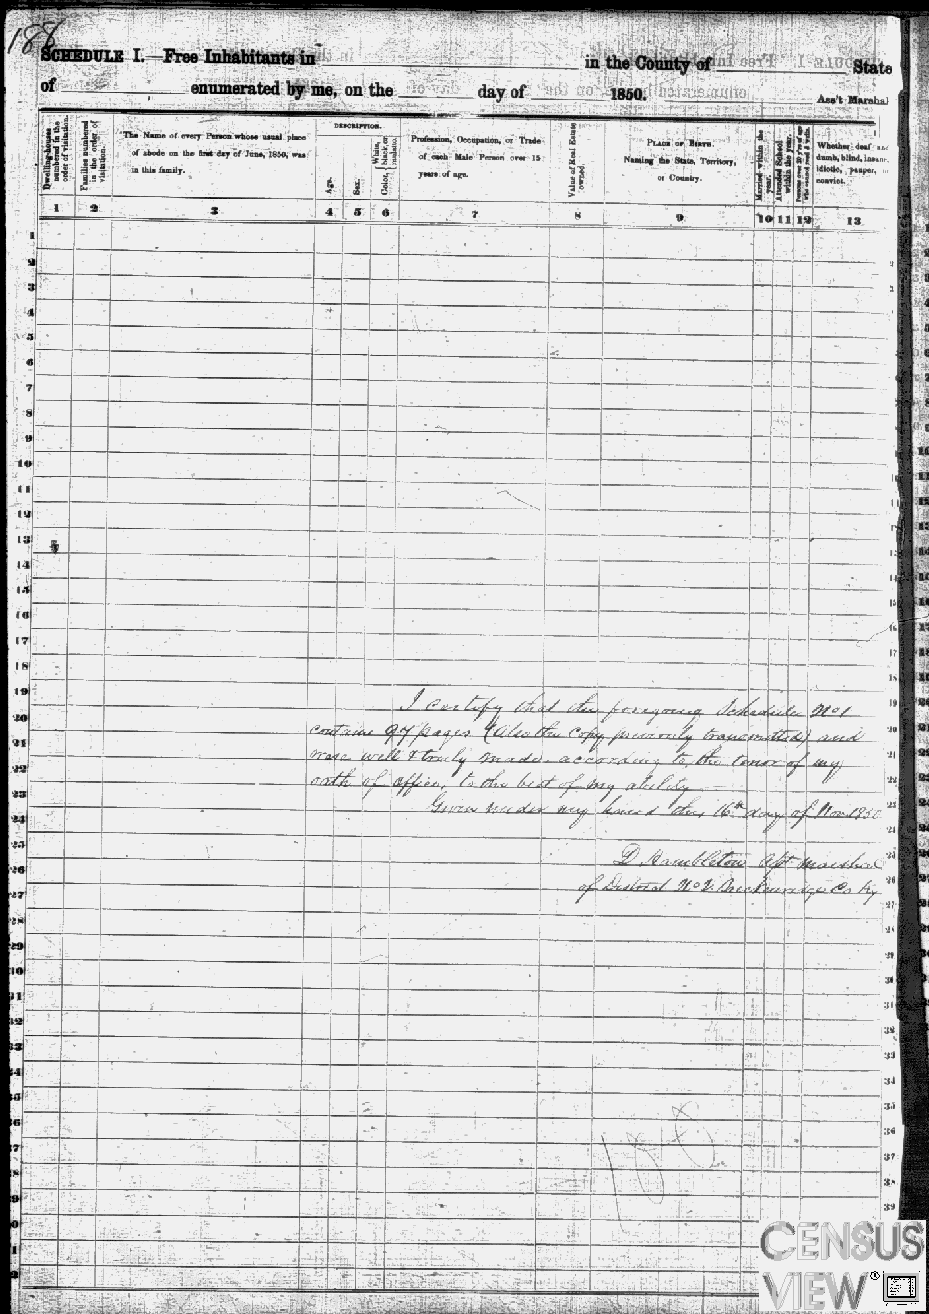 188
SCHEDULE I.—Free Inhabitants in in the County of State
of enumerated by me, on the day of 1850. Ass't Marshal
Dwelling-houses numbered in the order of visitation.
Families numbered in the order of visitation.
The Name of every Person whose usual place of abode on the first day of June, 1850, was in this family.
DESCRIPTION.
Age.
Sex.
Color, White, black, or mulatto.
Profession, Occupation, or Trade of each Male Person over 15 years of age.
Value of Real Estate owned.
PLACE OF BIRTH. Naming the State, Territory, or Country.
Married within the year.
Attended School within the year.
Persons over 20 y'rs of age who cannot read & write.
Whether deaf and dumb, blind, insane, idiotic, pauper, or convict.
1 2 3 4 5 6 7 8 9 10 11 12 13
1
2
3
4
5
6
7
8
9
10
11
12
13
14
15
16
17
18
19
20
21
22
23
24
25
26
27
28
29
30
31
32
33
34
35
36
37
38
39
I certify that the foregoing Schedule No 1
contains 94 pages (also the copy previously transmitted) and
was well & truly made according to the tenor of my
oath of office, to the best of my ability
Given under my hand this 16th day of Nov 1850
D Hambleton Ast Marshal
of District No 2 Breckenridge Co Ky
CENSUS
VIEW®